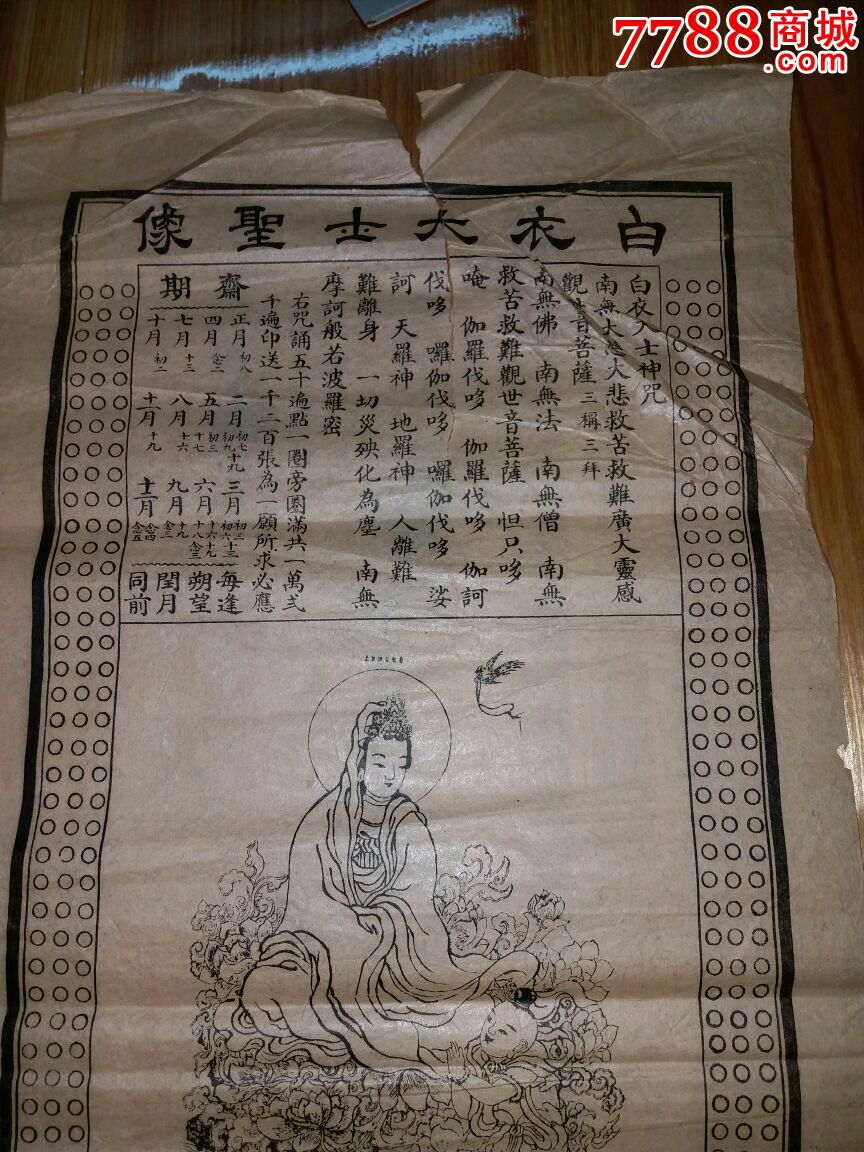 7788商城
.com
白衣大士聖像
白衣大士神咒
南無大慈大悲救苦救難廣大靈感
觀世音菩薩 三稱三拜
南無佛 南無法 南無僧 南無
救苦救難觀世音菩薩 怛只哆
唵 伽羅伐哆 伽羅伐哆 伽訶
伐哆 囉伽伐哆 囉伽伐哆 娑
訶 天羅神 地羅神 人離難
難離身 一切災殃化為塵 南無
摩訶般若波羅密
右咒誦五十遍點一圈旁圈滿共一萬弍
千遍印送一千二百張為一願所求必應
齋期
正月 初八 二月 初七 初九 十九 三月 初三 初六 十三 每逢
四月 念二 五月 初三 十七 六月 十六 十八 十九 念三 朔望
七月 十三 八月 十六 九月 十九 念三 閏月
十月 初二 十一月 十九 十二月 念四 念五 同前